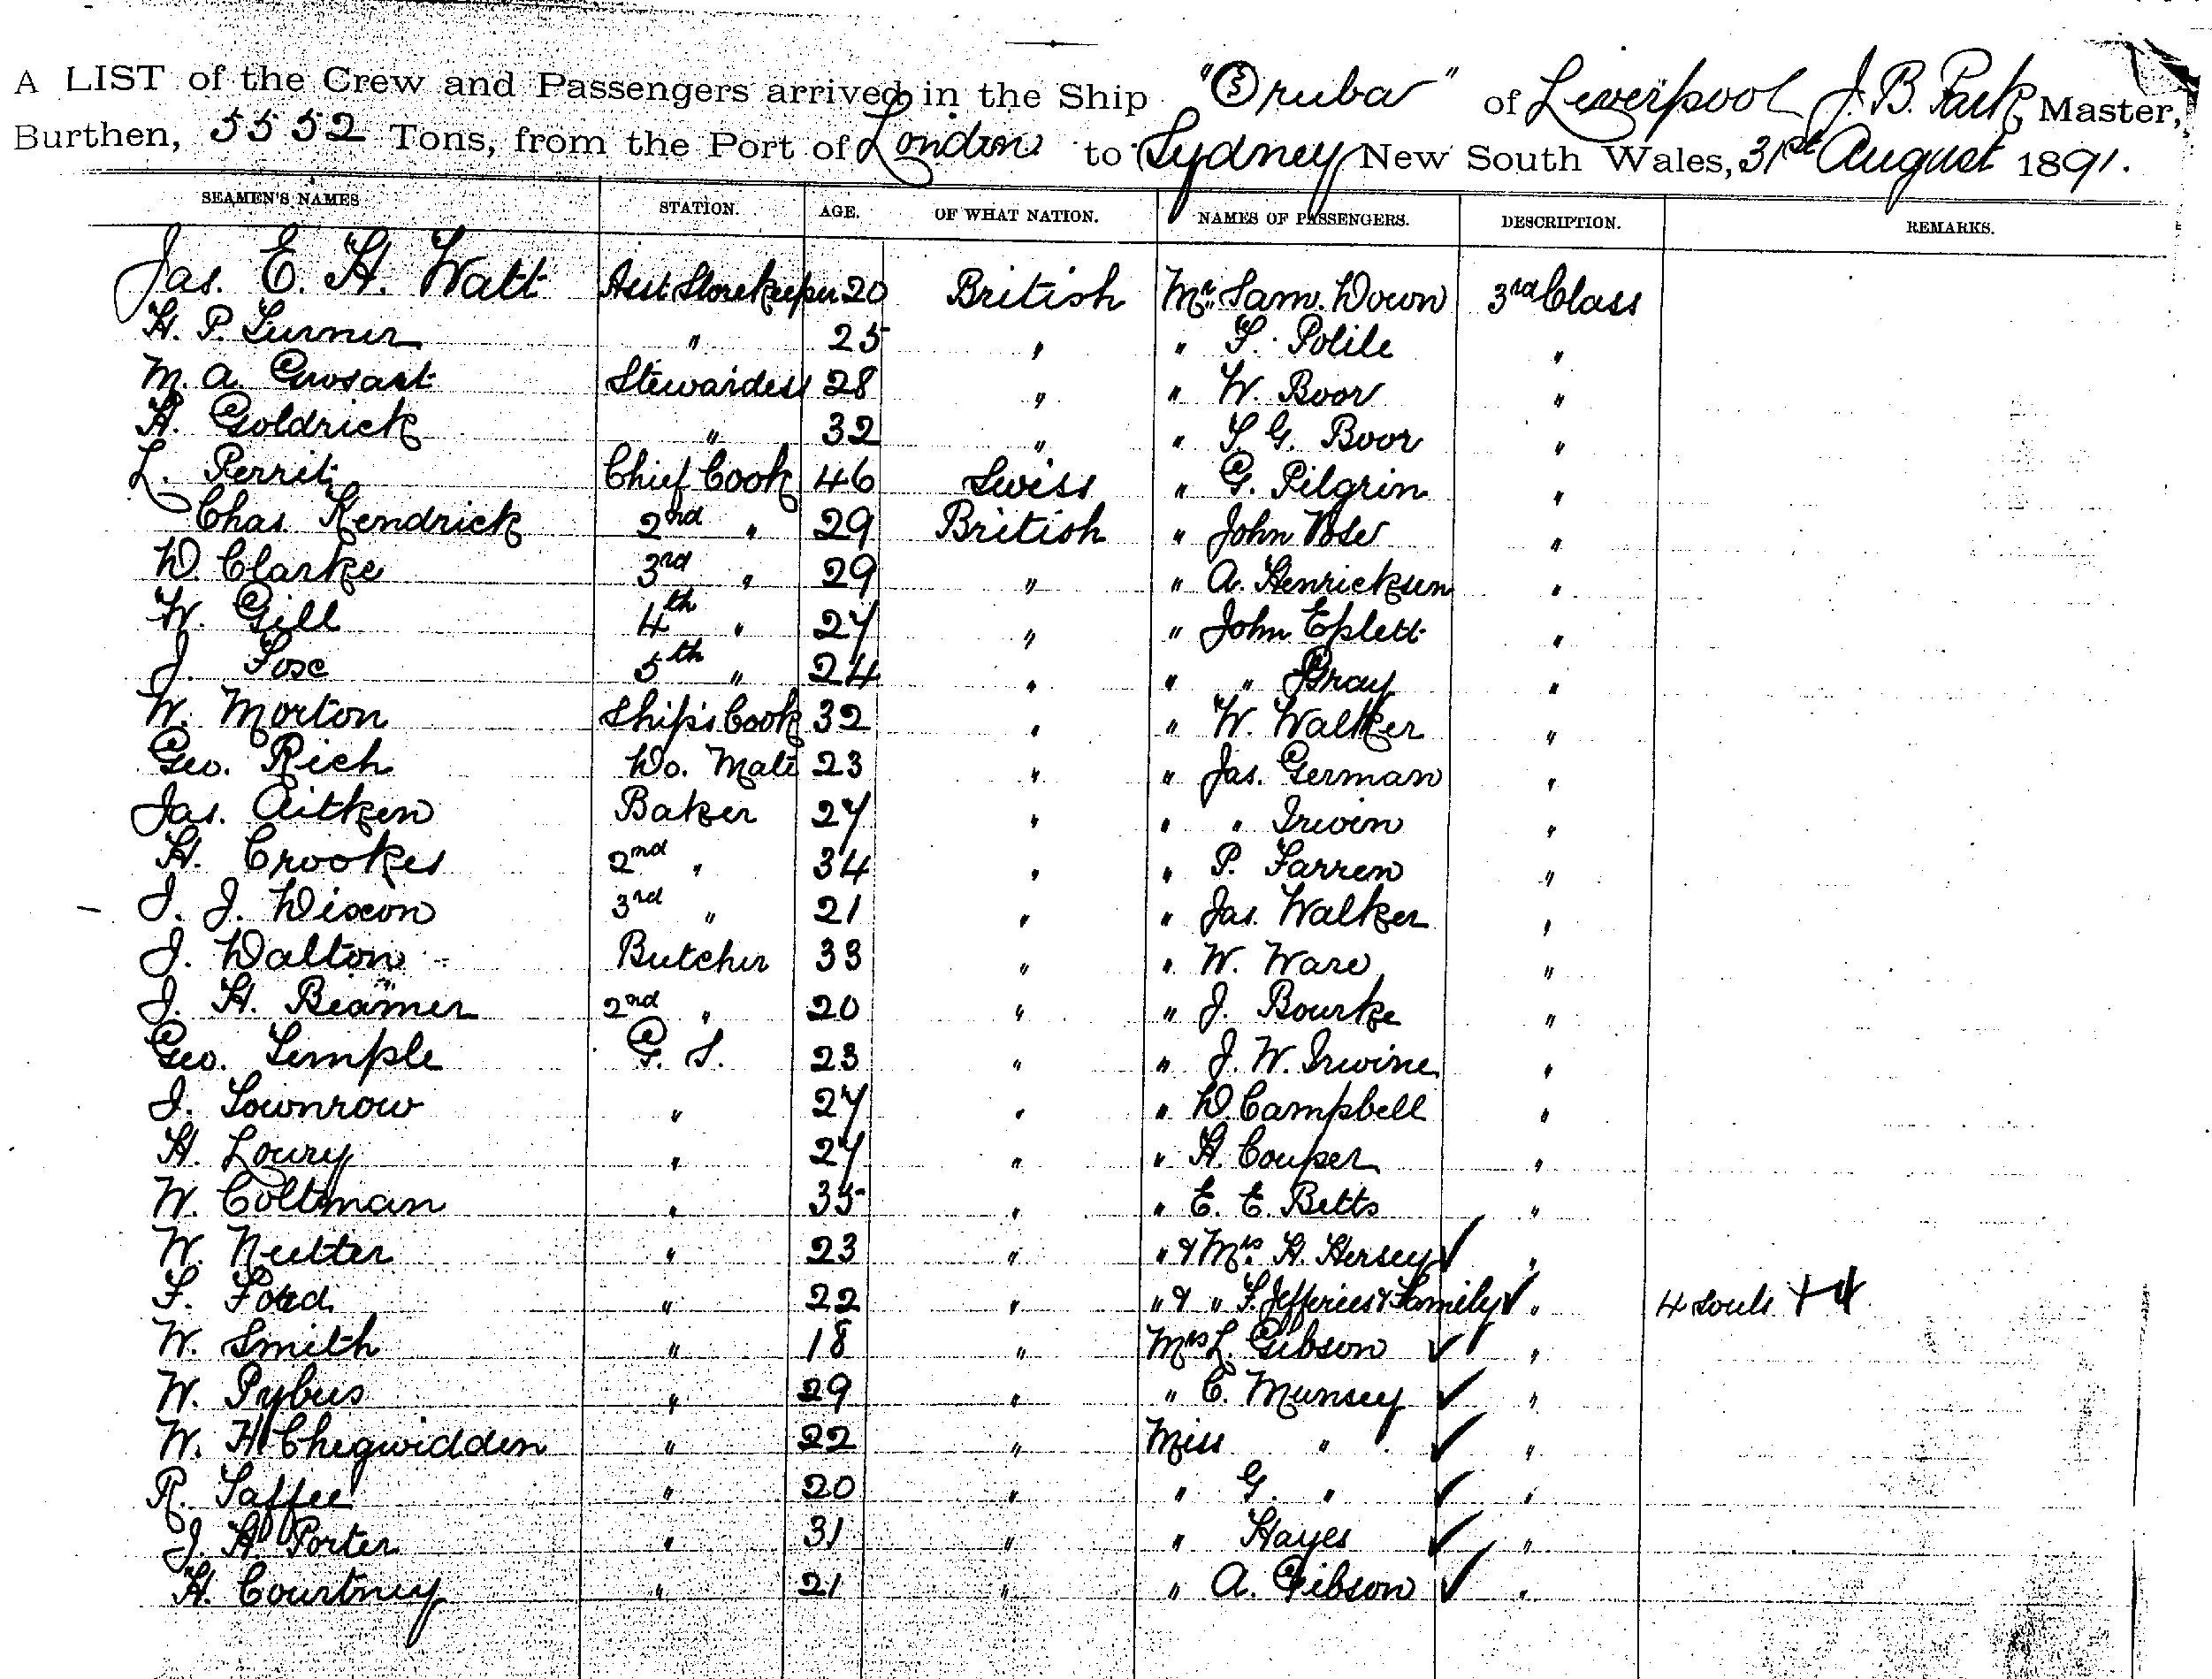 A LIST of the Crew and Passengers arrived in the Ship "Oruba" of Liverpool J. B. Park, Master,
Burthen, 5552 Tons, from the Port of London to Sydney New South Wales, 31st August 1891.
SEAMEN'S NAMES STATION. AGE. OF WHAT NATION. NAMES OF PASSENGERS. DESCRIPTION. REMARKS.
Jas. E. H. Watt Asst Storekeeper 20 British Mr. Sam. Down 3rd Class
H. P. Turner " 25 " " Polile "
M. A. Stewardess 28 " " W. Boor "
H. Goldrick " 32 " " S. G. Boor "
L. Perrit Chief Cook 46 Swiss " G. Pilgrin "
Chas. Kendrick 2nd " 29 British " John "
W. Clarke 3rd " 29 " " A. Henricksen "
W. Gill 4th " 27 " " John Eplett "
J. 5th " 24 " " " Gray "
W. Morton Ship's Cook 32 " " W. Walker "
Geo. Rich Do. Mate 23 " " Jas. German "
Jas. Aitken Baker 27 " " " Irwin "
H. Crookes 2nd " 34 " " P. Farren "
J. J. Dixon 3rd " 21 " " Jas. Walker "
J. Dalton Butcher 33 " " W. Ware "
J. H. Beamer 2nd " 20 " " J. Bourke "
Geo. Temple G. S. 23 " " J. W. Irwine "
J. Townrow " 27 " " D. Campbell "
H. Lowry " 27 " " H. Couper "
W. Coltman " 35 " " E. E. Betts "
W. Nutter " 23 " " & Mrs. H. Hersey ✓ "
F. " 22 " " & " F. Jefferies & Family ✓ " 4 souls + 4
W. Smith " 18 " Mrs L. Gibson ✓ "
W. Pybus " 29 " " C. Munsey ✓ "
W. H. Chegwidden " 22 " Miss " ✓ "
R. Taffee " 20 " " G. " ✓ "
J. H. Porter " 31 " " Hayes ✓ "
H. Courtney " 21 " " A. Gibson ✓ "